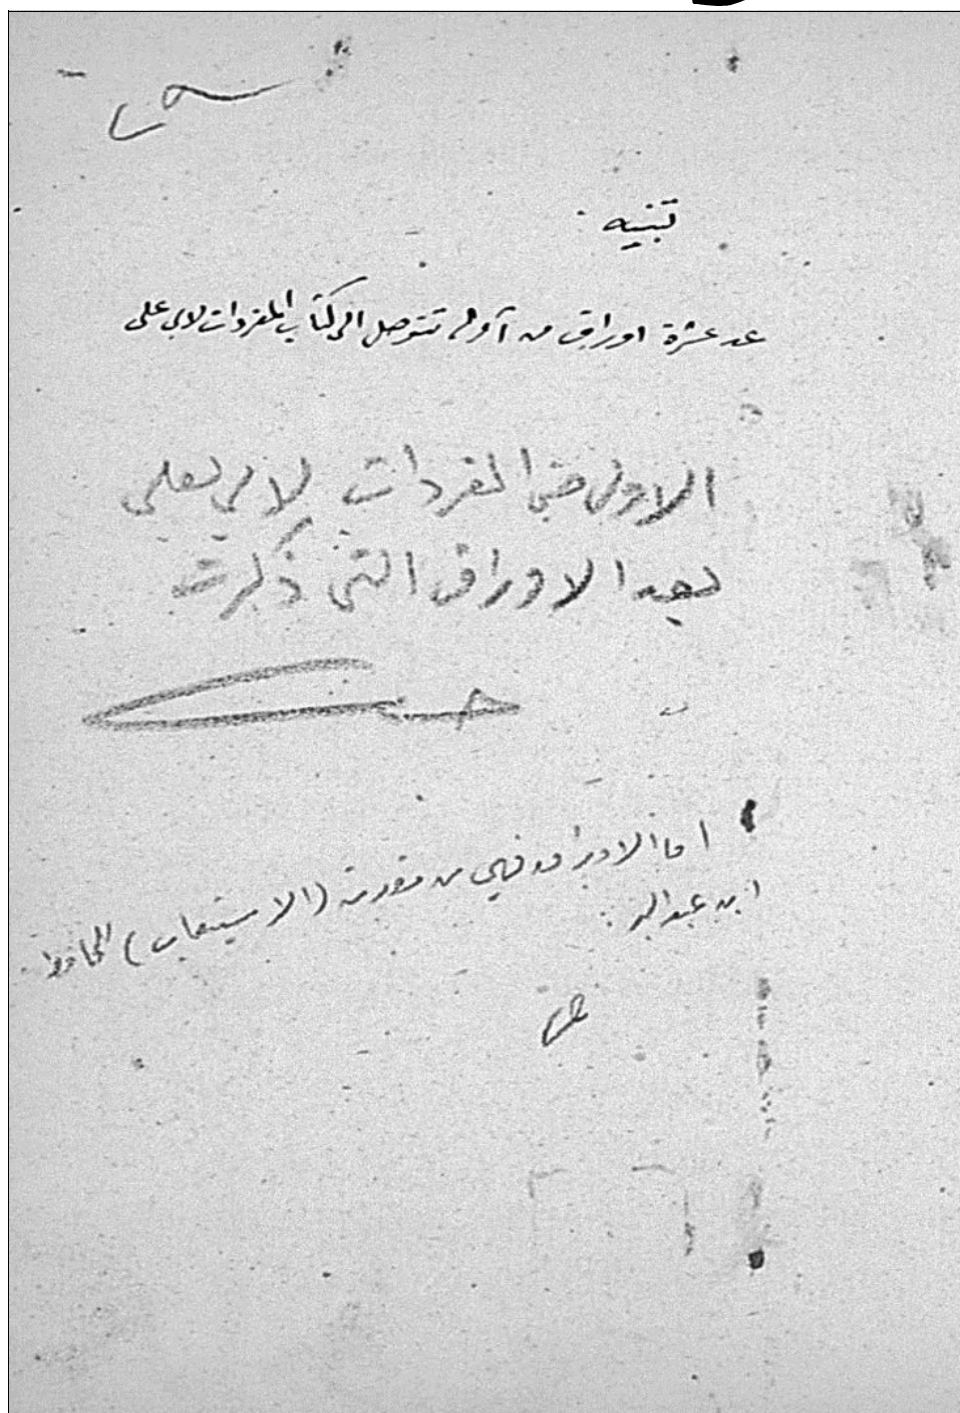 تنبيه :
عد عشرة اوراق من آوله تتوصل الى كتاب المفردات لابي على
الاولى المفردات لابي يعلى
بعد الاوراق التي ذكرت
اما الاوراق فهي من مقدمة (الاستيعاب) للحافظ
ابن عبدالبر .